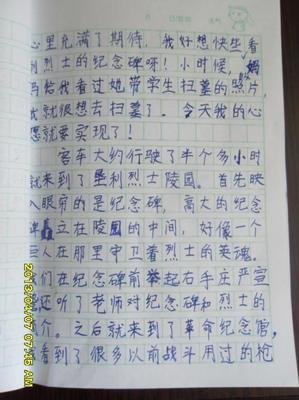 月 日 星期 天气
心里充满了期待，我好想快些看
到烈士的纪念碑呀！小时候，妈
妈给我看过她带学生扫墓的照片，
我就很想去扫墓了。今天我的心
愿就要实现了！
客车大约行驶了半个多小时
就来到了垦利烈士陵园。首先映
入眼帘的是纪念碑，高大的纪念
碑矗立在陵园的中间，好像一个
巨人在那里守卫着烈士的英魂。
我们在纪念碑前举起右手庄严宣
誓还听了老师对纪念碑和烈士的
介。之后就来到了革命纪念馆，
看到了很多以前战斗用过的枪
2013/04/07 07:45 AM